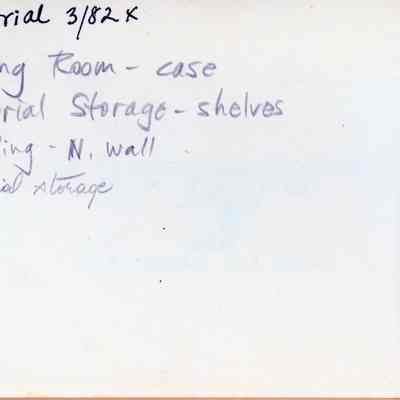 rial 3/82 x
ng Room - case
rial Storage - shelves
ing - N. wall
ial storage